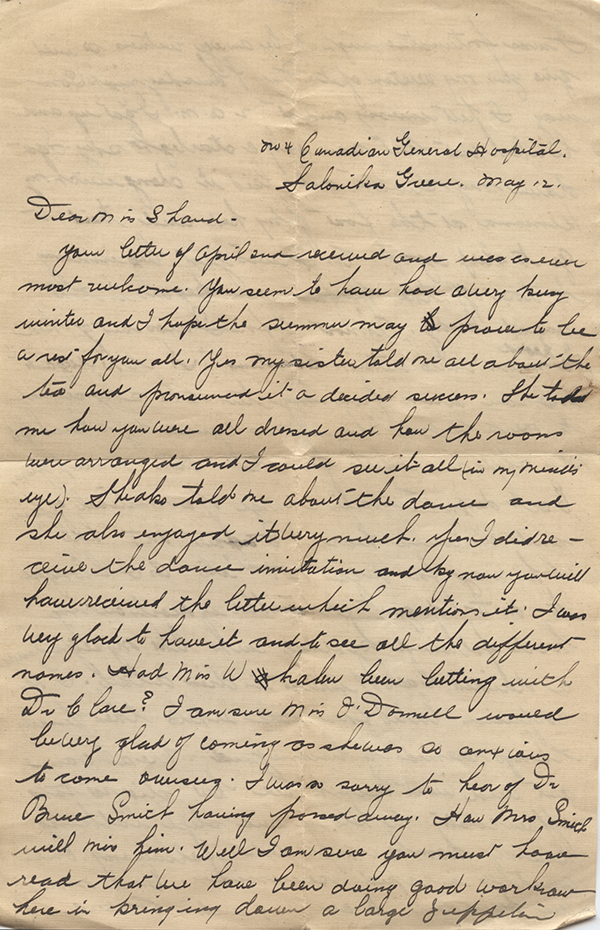 No 4 Canadian General Hospital.
Salonika Greece. May 12.
Dear Miss Shand -
Your letter of April 2nd received and was as ever
most welcome. You seem to have had a very busy
winter and I hope the summer may prove to be
a rest for you all. Yes my sister told me all about the
tea and pronounced it a decided success. She told
me how you were all dressed and how the rooms
were arranged and I could see it all (in my mind's
eye). She also told me about the dance and
she also enjoyed it very much. Yes I did re -
ceive the dance invitation and by now you will
have received the letter which mentions it. I was
very glad to have it and to see all the different
names. Had Miss W been betting with
Dr Clare? I am sure Miss O'Donnell would
be very glad of coming as she was so anxious
to come overseas. I was so sorry to hear of Dr
Bruce Smith having passed away. How Mrs Smith
will miss him. Well I am sure you must have
read that we have been doing good work
here in bringing down a large Zeppelin